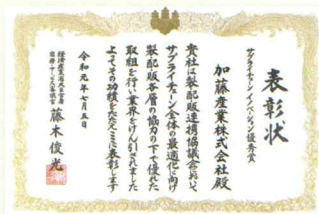 表彰状
サプライチェーン イノベーション優秀賞
加藤産業株式会社殿
貴社は製配販連携協議会において
サプライチェーン全体の最適化に向け
製配販各層の協力の下で優れた
取組を行い業界をけん引されました
よってその功績をたたえここに表彰します
令和元年七月五日
経済産業省大臣官房
商務・サービス審議官 藤木俊光